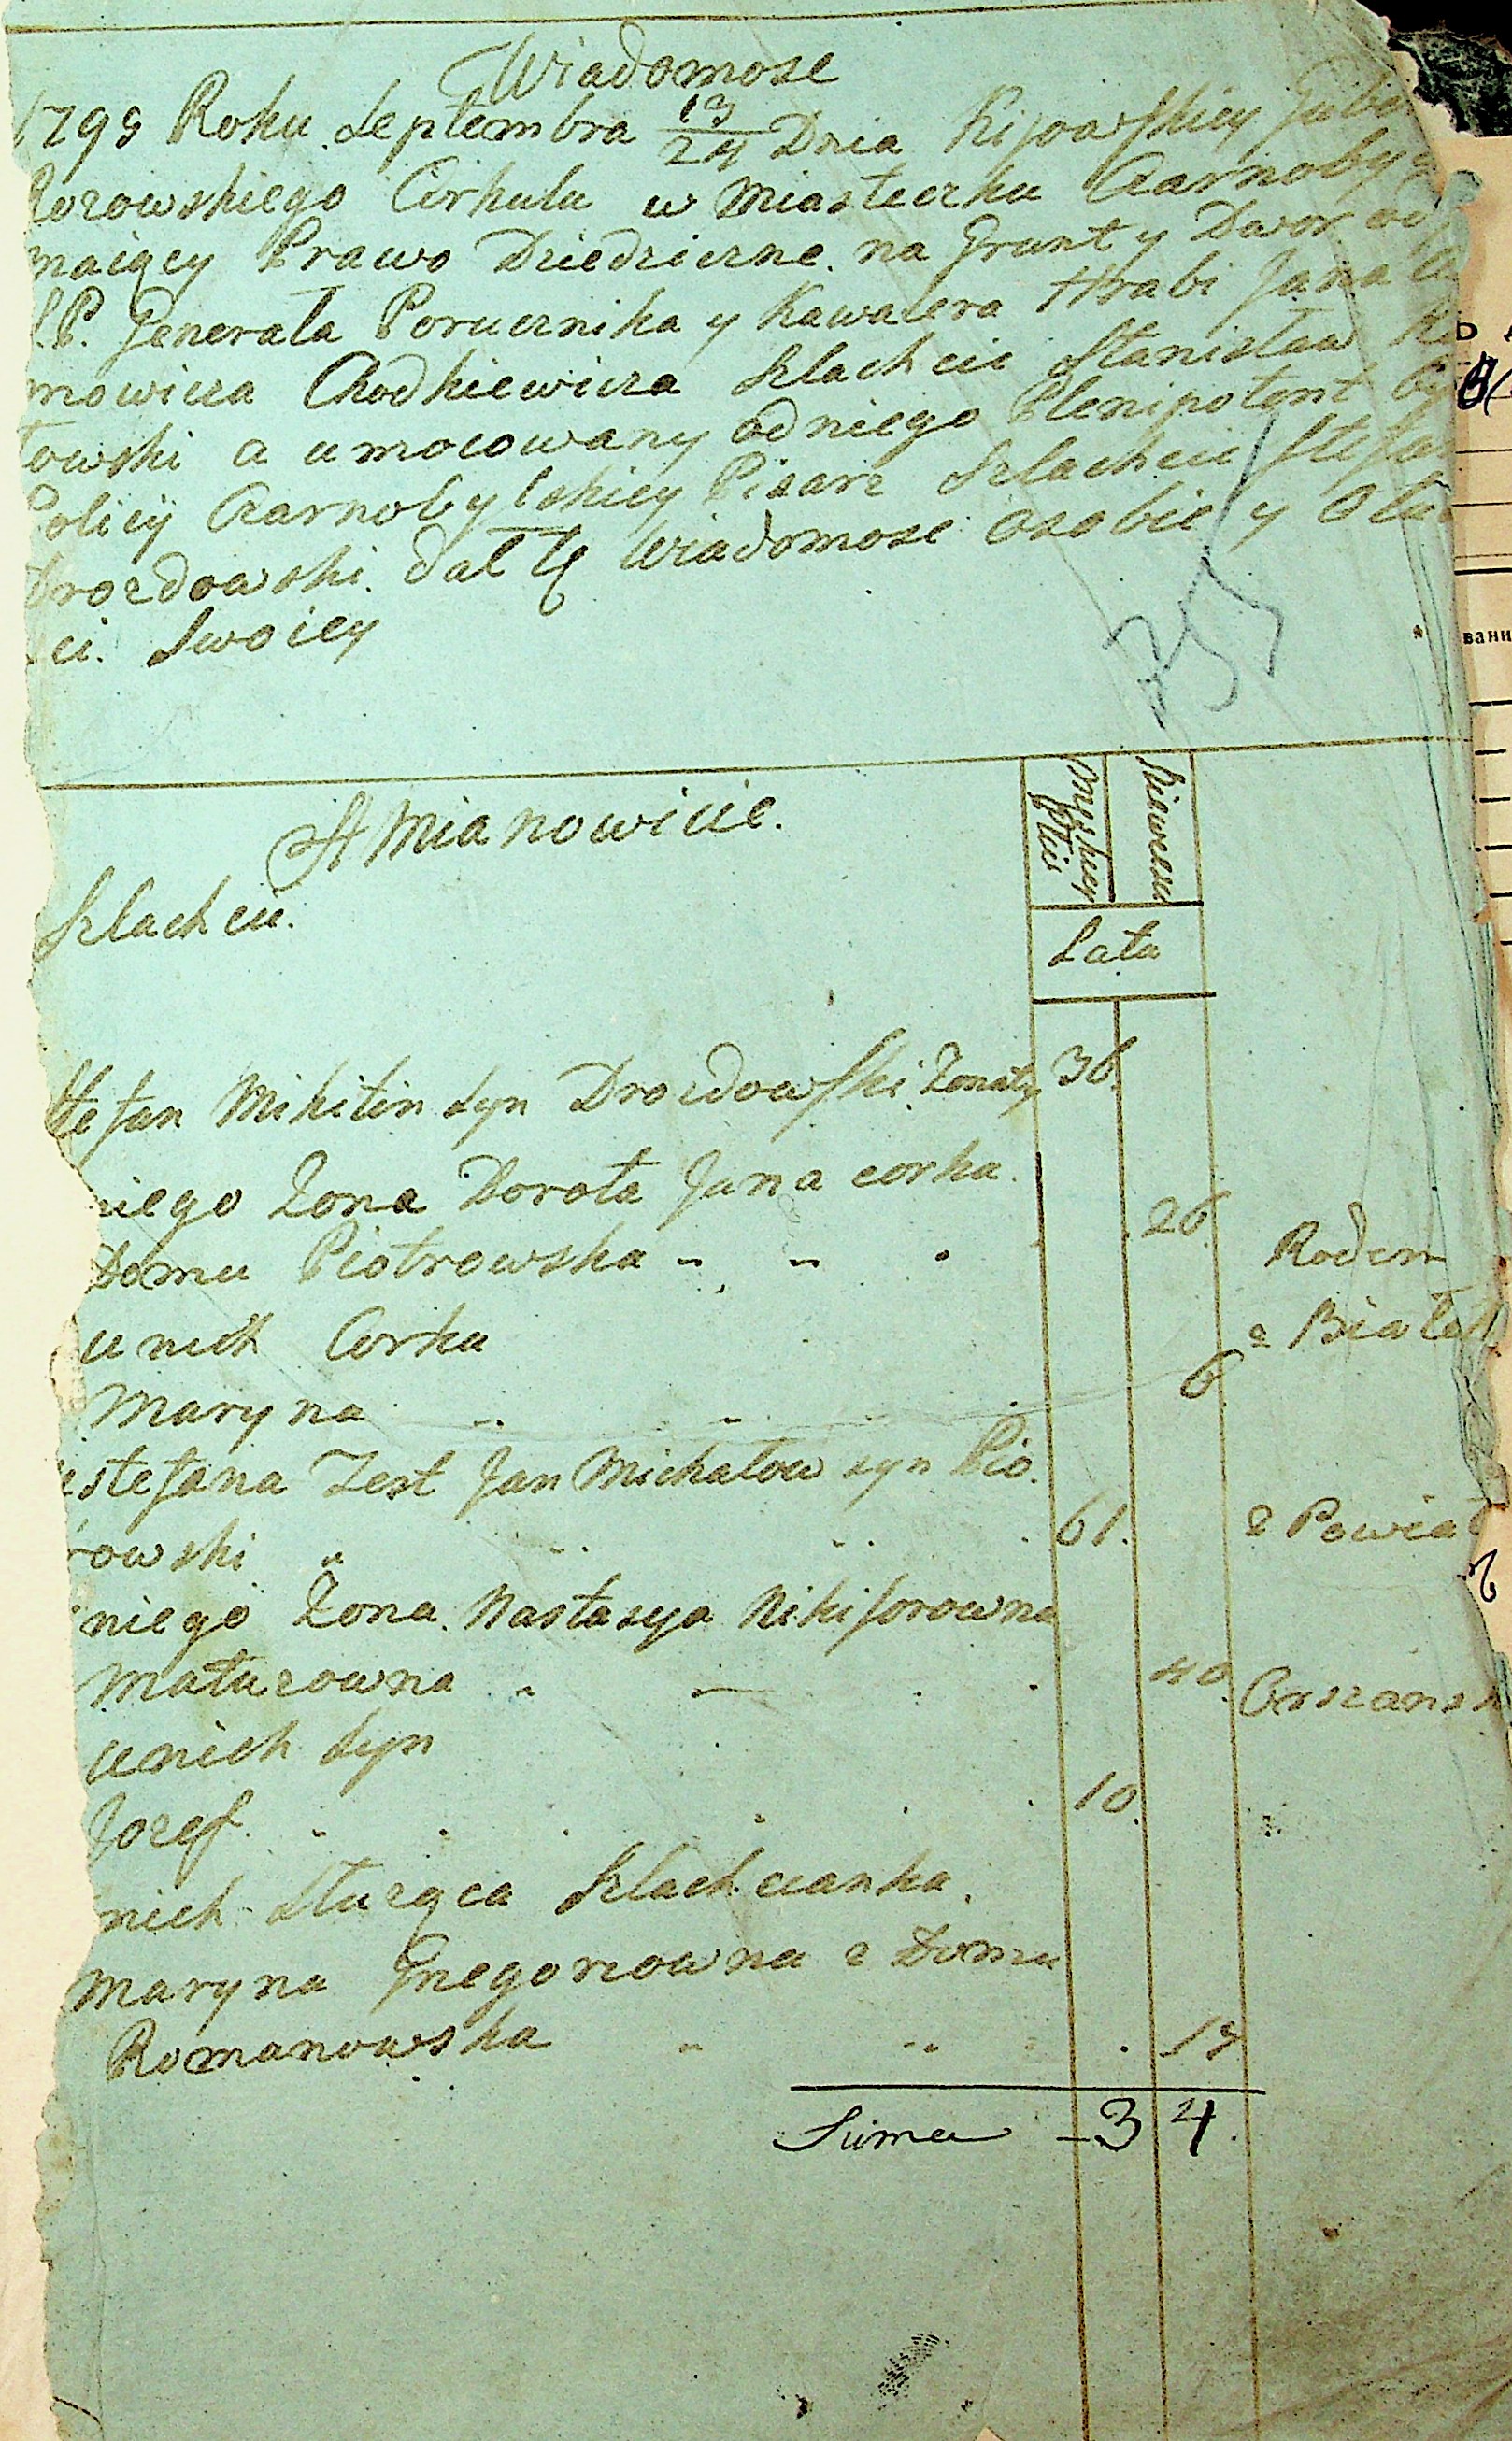 Wiadomosc
1795 Roku Septembra 13/24 Dnia Kijowskiey Gube
rozowskiego Cirkulu w Miasteczku Czarnoby
maiący Prawo Dziedziczne na Grunt y Dwor od
P. Generała Porucznika y Kawalera Hrabi Jana
mowicza Chodkiewicza Szlachcic Stanisław
towski a umocowany odniego Plenipotent
Policij Czarnobylskiey Pisarz Szlachcic Stefan
Drozdowski dał tę Wiadomosc osobie y
ci Swoiey
355
A Mianowicie.
Męskiey Płci
Niewiescia
Szlachcic.
Lata
Stefan Mikitin syn Drozdowski Zonaty 36
niego Zona Dorota Jana corka.
Domu Piotrowska 26 Rodem
unich Corka z Białe
Maryna 6
ustefana Test Jan Michałow syn Pio.
rowski 61. z Powiat
niego Zona Nastasya Nikiforowna
Maturowna 40 Orszansk
unich syn
Jozef. 10
nich Służąca Szlachcianka.
Maryna Gregorzowna z Domu
Romanowska 19
Suma 3 4
вани